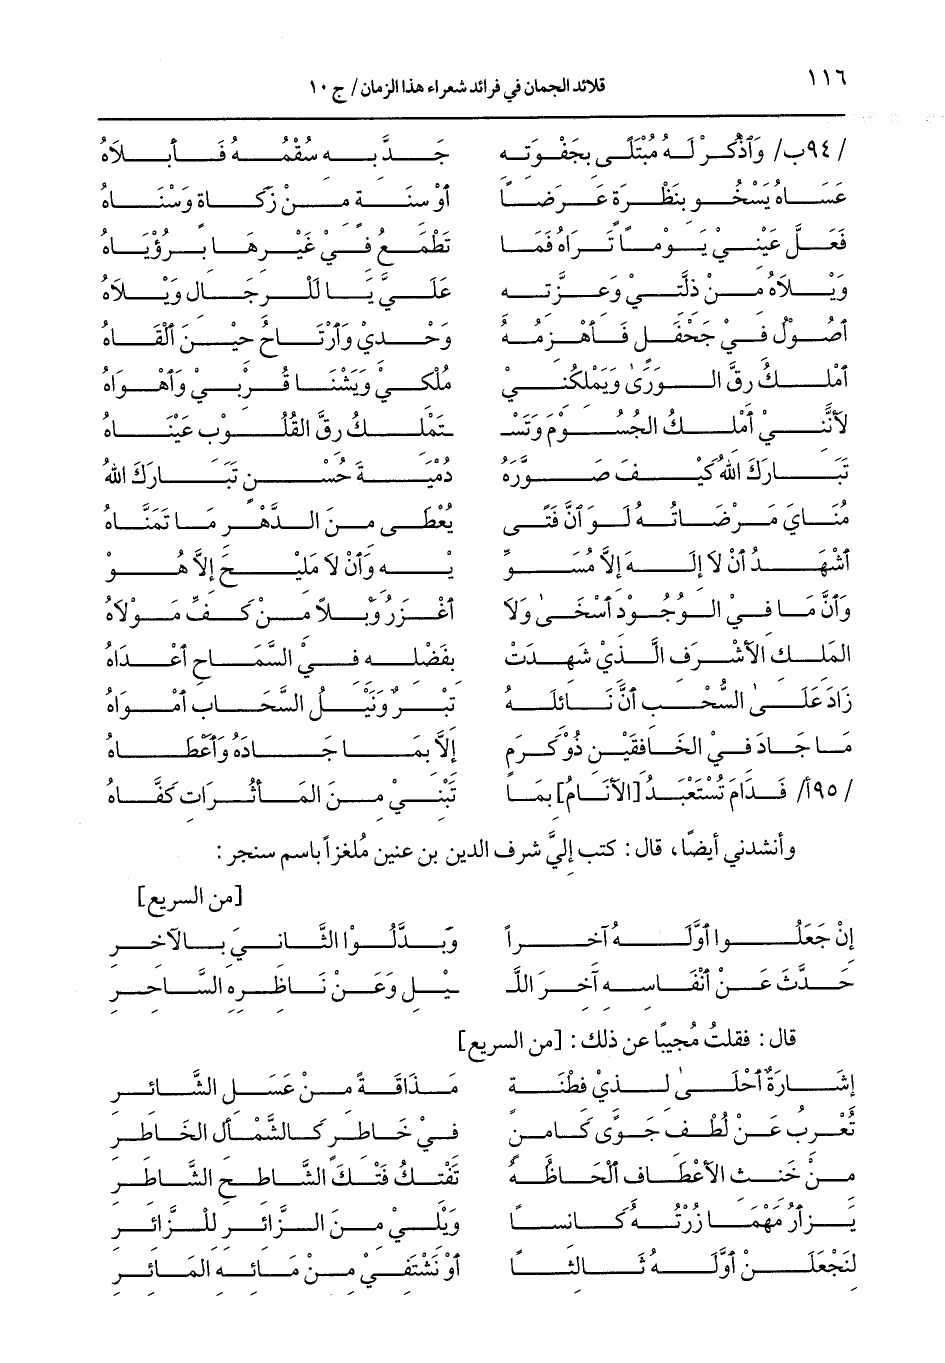 ١١٦ قلائد الجمان في فرائد شعراء هذا الزمان/ ج ١٠
/٩٤ب/ وَاذْكُرْ لَهُ مُبْتَلًى بِجَفْوَتِهِ جَدَّ بِهِ سُقْمُهُ فَأَبْلاَهُ
عَسَاهُ يَسْخُو بِنَظْرَةٍ عَرَضًا أَوْ سِنَةٍ مِنْ زَكَاةِ وَسْنَاهُ
فَعَلَّ عَيْنِي يَوْمًا تَرَاهُ فَمَا تَطْمَعُ فِيْ غَيْرِهَا بِرُؤْيَاهُ
وَيْلاَهُ مِنْ ذِلَّتِيْ وَعِزَّتِهِ عَلَيَّ يَا لَلْرِجَالِ وَيْلاَهُ
أَصُوْلُ فِيْ جَحْفَلٍ فَأَهْزِمُهُ وَحْدِيْ وَأَرْتَاحُ حِيْنَ أَلْقَاهُ
أَمْلِكُ رِقَّ الوَرَىٰ وَيَمْلِكُنِيْ مُلْكِيْ وَيَشْنَا قُرْبِيْ وَأَهْوَاهُ
لأَنَّنِيْ أَمْلِكُ الجُسُوْمَ وَتَسْـ ـتَمْلِكُ رِقَّ القُلُوْبِ عَيْنَاهُ
تَبَارَكَ اللهُ كَيْفَ صَوَّرَهُ دُمْيَةَ حُسْنٍ تَبَارَكَ اللهُ
مُنَايَ مَرْضَاتُهُ لَوِ أَنَّ فَتًى يُعْطَى مِنَ الدَّهْرِ مَا تَمَنَّاهُ
أَشْهَدُ أَنْ لاَ إِلَهَ إِلاَّ مُسَوِّ يْهِ وَأَنْ لاَ مَلِيْحَ إِلاَّ هُوْ
وَأَنَّ مَا فِيْ الوُجُوْدِ أَسْخَىٰ وَلاَ أَغْزَرُ وَبْلاً مِنْ كَفِّ مَوْلاَهُ
المَلِكِ الأَشْرَفِ الَّذِيْ شَهِدَتْ بِفَضْلِهِ فِيْ السَّمَاحِ أَعْدَاهُ
زَادَ عَلَىٰ السُّحْبِ أَنَّ نَائِلَهُ تِبْرٌ وَنَيْلُ السَّحَابِ أَمْوَاهُ
مَا جَادَ فِيْ الخَافِقَيْنِ ذُوْ كَرَمٍ إِلاَّ بِمَا جَادَهُ وَأَعْطَاهُ
/٩٥أ/ فَدَامَ تُسْتَعْبَدُ [الأَنَامُ] بِمَا تَبْنِيْ مِنَ المَأْثُرَاتِ كَفَّاهُ
وأنشدني أيضًا، قال: كتب إليَّ شرف الدين بن عنين مُلغزاً باسم سنجر:
[من السريع]
إِنْ جَعَلُوا أَوَّلَهُ آخِراً وَبَدَّلُوْا الثَّانِيَ بِالآخِرِ
حَدَّثَ عَنْ أَنْفَاسِهِ آخِرَ اللَّـ ـيْلِ وَعَنْ نَاظِرِهِ السَّاحِرِ
قال: فقلتُ مُجيبًا عن ذلك: [من السريع]
إِشَارَةٌ أَحْلَىٰ لِذِيْ فِطْنَةٍ مَذَاقَةً مِنْ عَسَلِ الشَّائِرِ
تُعْرِبُ عَنْ لُطْفِ جَوًى كَامِنٍ فِيْ خَاطِرٍ كَالشَّمْأَلِ الخَاطِرِ
مِنْ خَنِثِ الأَعْطَافِ أَلْحَاظُهُ تَفْتِكُ فَتْكَ الشَّاطِحِ الشَّاطِرِ
يَزْأَرُ مَهْمَا زُرْتُهُ كَانِسًا وَيْلِيْ مِنَ الزَّائِرِ لِلْزَّائِرِ
لَنَجْعَلَنْ أَوَّلَهُ ثَالِثًا أَوْ نَشْتَفِيْ مِنْ مَائِهِ المَائِرِ